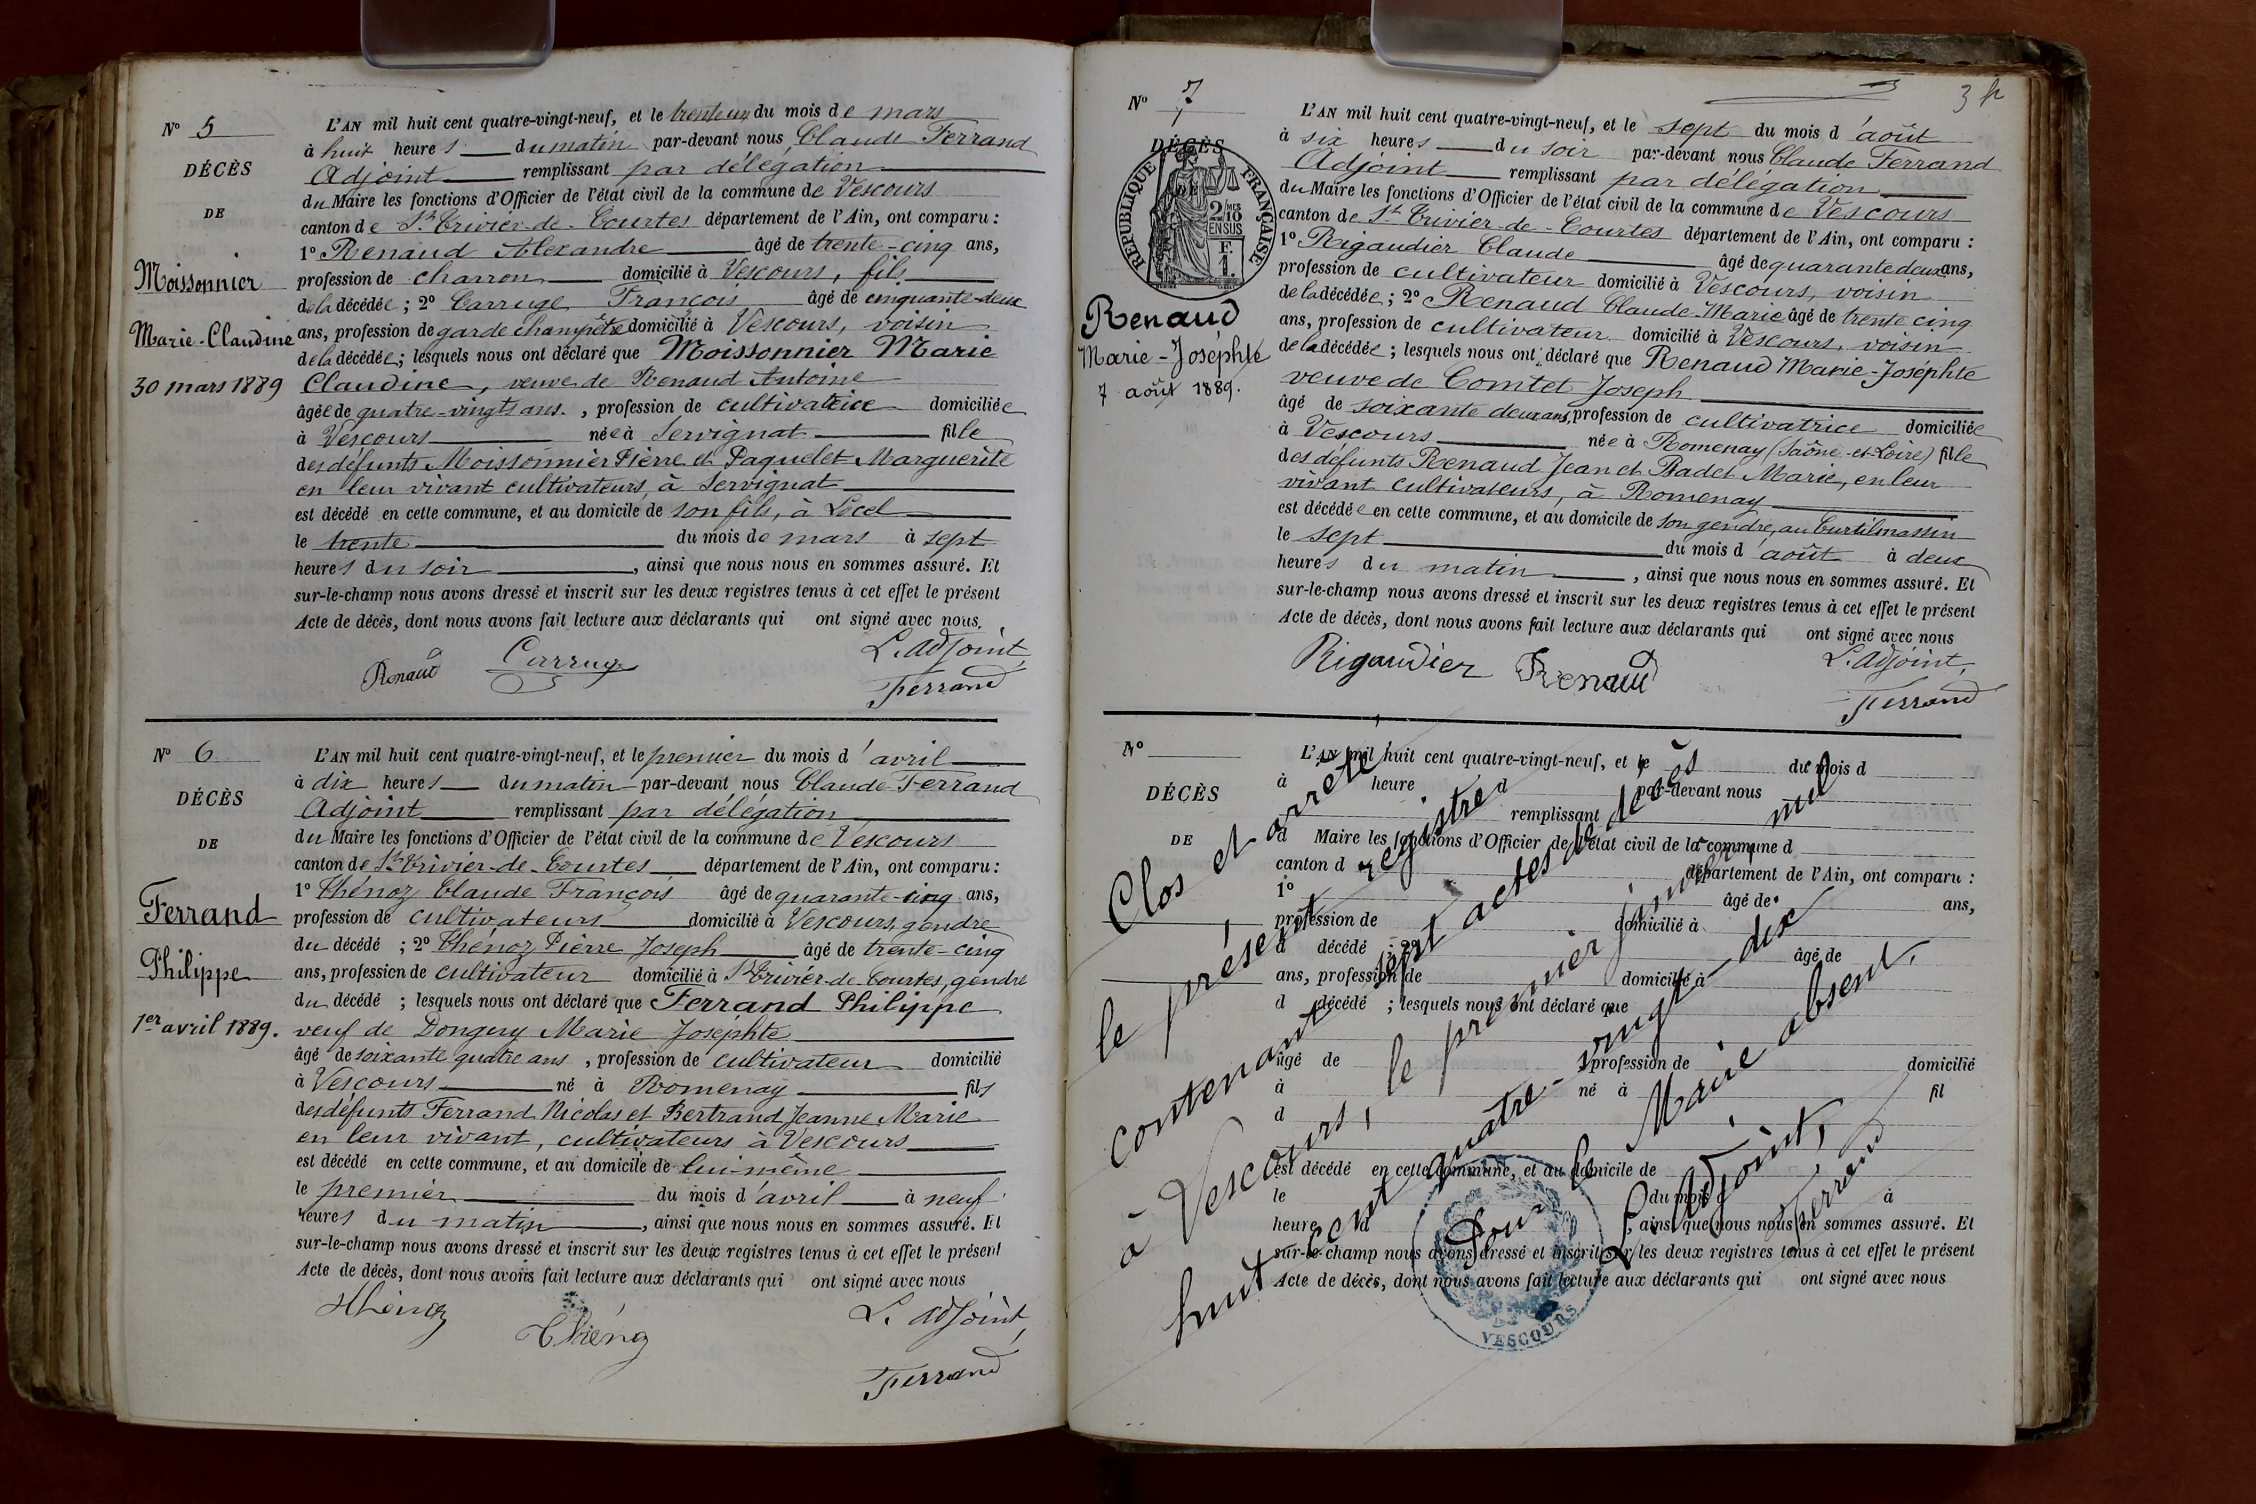 N° 5
DÉCÈS
DE
Moissonnier
Marie-Claudine
30 mars 1889
L'AN mil huit cent quatre-vingt-neuf, et le trente un du mois de mars
à huit heures du matin par-devant nous Claude Ferrand
Adjoint remplissant par délégation
du Maire les fonctions d'Officier de l'état civil de la commune de Vescours
canton de St Trivier-de-Courtes département de l'Ain, ont comparu :
1° Renaud Alexandre âgé de trente-cinq ans,
profession de charron domicilié à Vescours, fils
de la décédée ; 2° Carruge François âgé de cinquante-deux
ans, profession de garde champêtre domicilié à Vescours, voisin
de la décédée ; lesquels nous ont déclaré que Moissonnier Marie
Claudine, veuve de Renaud Antoine
âgée de quatre-vingts ans , profession de cultivatrice domiciliée
à Vescours née à Servignat fille
des défunts Moissonnier Pierre et Paquelet Marguerite
en leur vivant cultivateurs, à Servignat
est décédé en cette commune, et au domicile de son fils, à Locel
le trente du mois de mars à sept
heures du soir , ainsi que nous nous en sommes assuré. Et
sur-le-champ nous avons dressé et inscrit sur les deux registres tenus à cet effet le présent
Acte de décès, dont nous avons fait lecture aux déclarants qui ont signé avec nous.
Renaud Carruge L'adjoint,
Ferrand
N° 6
DÉCÈS
DE
Ferrand
Philippe
1er avril 1889.
L'AN mil huit cent quatre-vingt-neuf, et le premier du mois d'avril
à dix heures du matin par-devant nous Claude Ferrand
Adjoint remplissant par délégation
du Maire les fonctions d'Officier de l'état civil de la commune de Vescours
canton de St Trivier-de-Courtes département de l'Ain, ont comparu :
1° Thénoz Claude François âgé de quarante-cinq ans,
profession de cultivateurs domicilié à Vescours, gendre
du décédé ; 2° Thénoz Pierre Joseph âgé de trente-cinq
ans, profession de cultivateur domicilié à St Trivier-de-Courtes, gendre
du décédé ; lesquels nous ont déclaré que Ferrand Philippe
veuf de Donguy Marie Josephte
âgé de soixante quatre ans , profession de cultivateur domicilié
à Vescours né à Romenay fils
des défunts Ferrand Nicolas et Bertrand Jeanne Marie
en leur vivant, cultivateurs à Vescours
est décédé en cette commune, et au domicile de lui-même
le premier du mois d'avril à neuf
heures du matin , ainsi que nous nous en sommes assuré. Et
sur-le-champ nous avons dressé et inscrit sur les deux registres tenus à cet effet le présent
Acte de décès, dont nous avons fait lecture aux déclarants qui ont signé avec nous
Thénoz Thénoz L'adjoint,
Ferrand
N° 7
DÉCÈS
DE
RÉPUBLIQUE FRANÇAISE
2/10 MES
EN SUS
F.
1.
Renaud
Marie-Joséphte
7 août 1889.
L'AN mil huit cent quatre-vingt-neuf, et le sept du mois d'août
à six heures du soir par-devant nous Claude Ferrand
Adjoint remplissant par délégation
du Maire les fonctions d'Officier de l'état civil de la commune de Vescours
canton de St Trivier-de-Courtes département de l'Ain, ont comparu :
1° Rigaudier Claude âgé de quarante deux ans,
profession de cultivateur domicilié à Vescours, voisin
de la décédée ; 2° Renaud Claude-Marie âgé de trente cinq
ans, profession de cultivateur domicilié à Vescours, voisin
de la décédée ; lesquels nous ont déclaré que Renaud Marie-Joséphte
veuve de Comtet Joseph
âgé de soixante deux ans, profession de cultivatrice domiciliée
à Vescours née à Romenay (Saône-et-Loire) fille
des défunts Renaud Jean et Badet Marie, en leur
vivant cultivateurs, à Romenay
est décédée en cette commune, et au domicile de son gendre, au Curtilmassin
le sept du mois d'août à deux
heures du matin , ainsi que nous nous en sommes assuré. Et
sur-le-champ nous avons dressé et inscrit sur les deux registres tenus à cet effet le présent
Acte de décès, dont nous avons fait lecture aux déclarants qui ont signé avec nous
Rigaudier Renaud L'adjoint,
Ferrand
N°
DÉCÈS
DE
L'AN mil huit cent quatre-vingt-neuf, et le du mois d
à heure d par-devant nous
remplissant
d Maire les fonctions d'Officier de l'état civil de la commune d
canton d département de l'Ain, ont comparu :
1° âgé de ans,
profession de domicilié à
d décédé ; 2° âgé de
ans, profession de domicilié à
d décédé ; lesquels nous ont déclaré que
âgé de , profession de domicilié
à né à fil
d
est décédé en cette commune, et au domicile de
le du mois d à
heure d , ainsi que nous nous en sommes assuré. Et
sur-le-champ nous avons dressé et inscrit sur les deux registres tenus à cet effet le présent
Acte de décès, dont nous avons fait lecture aux déclarants qui ont signé avec nous
Clos et arrêté
le présent registre
contenant sept actes de décès
à Vescours, le premier janvier mil
huit cent quatre-vingt-dix
Pour le Maire absent,
L'Adjoint,
Ferrand
VESCOURS